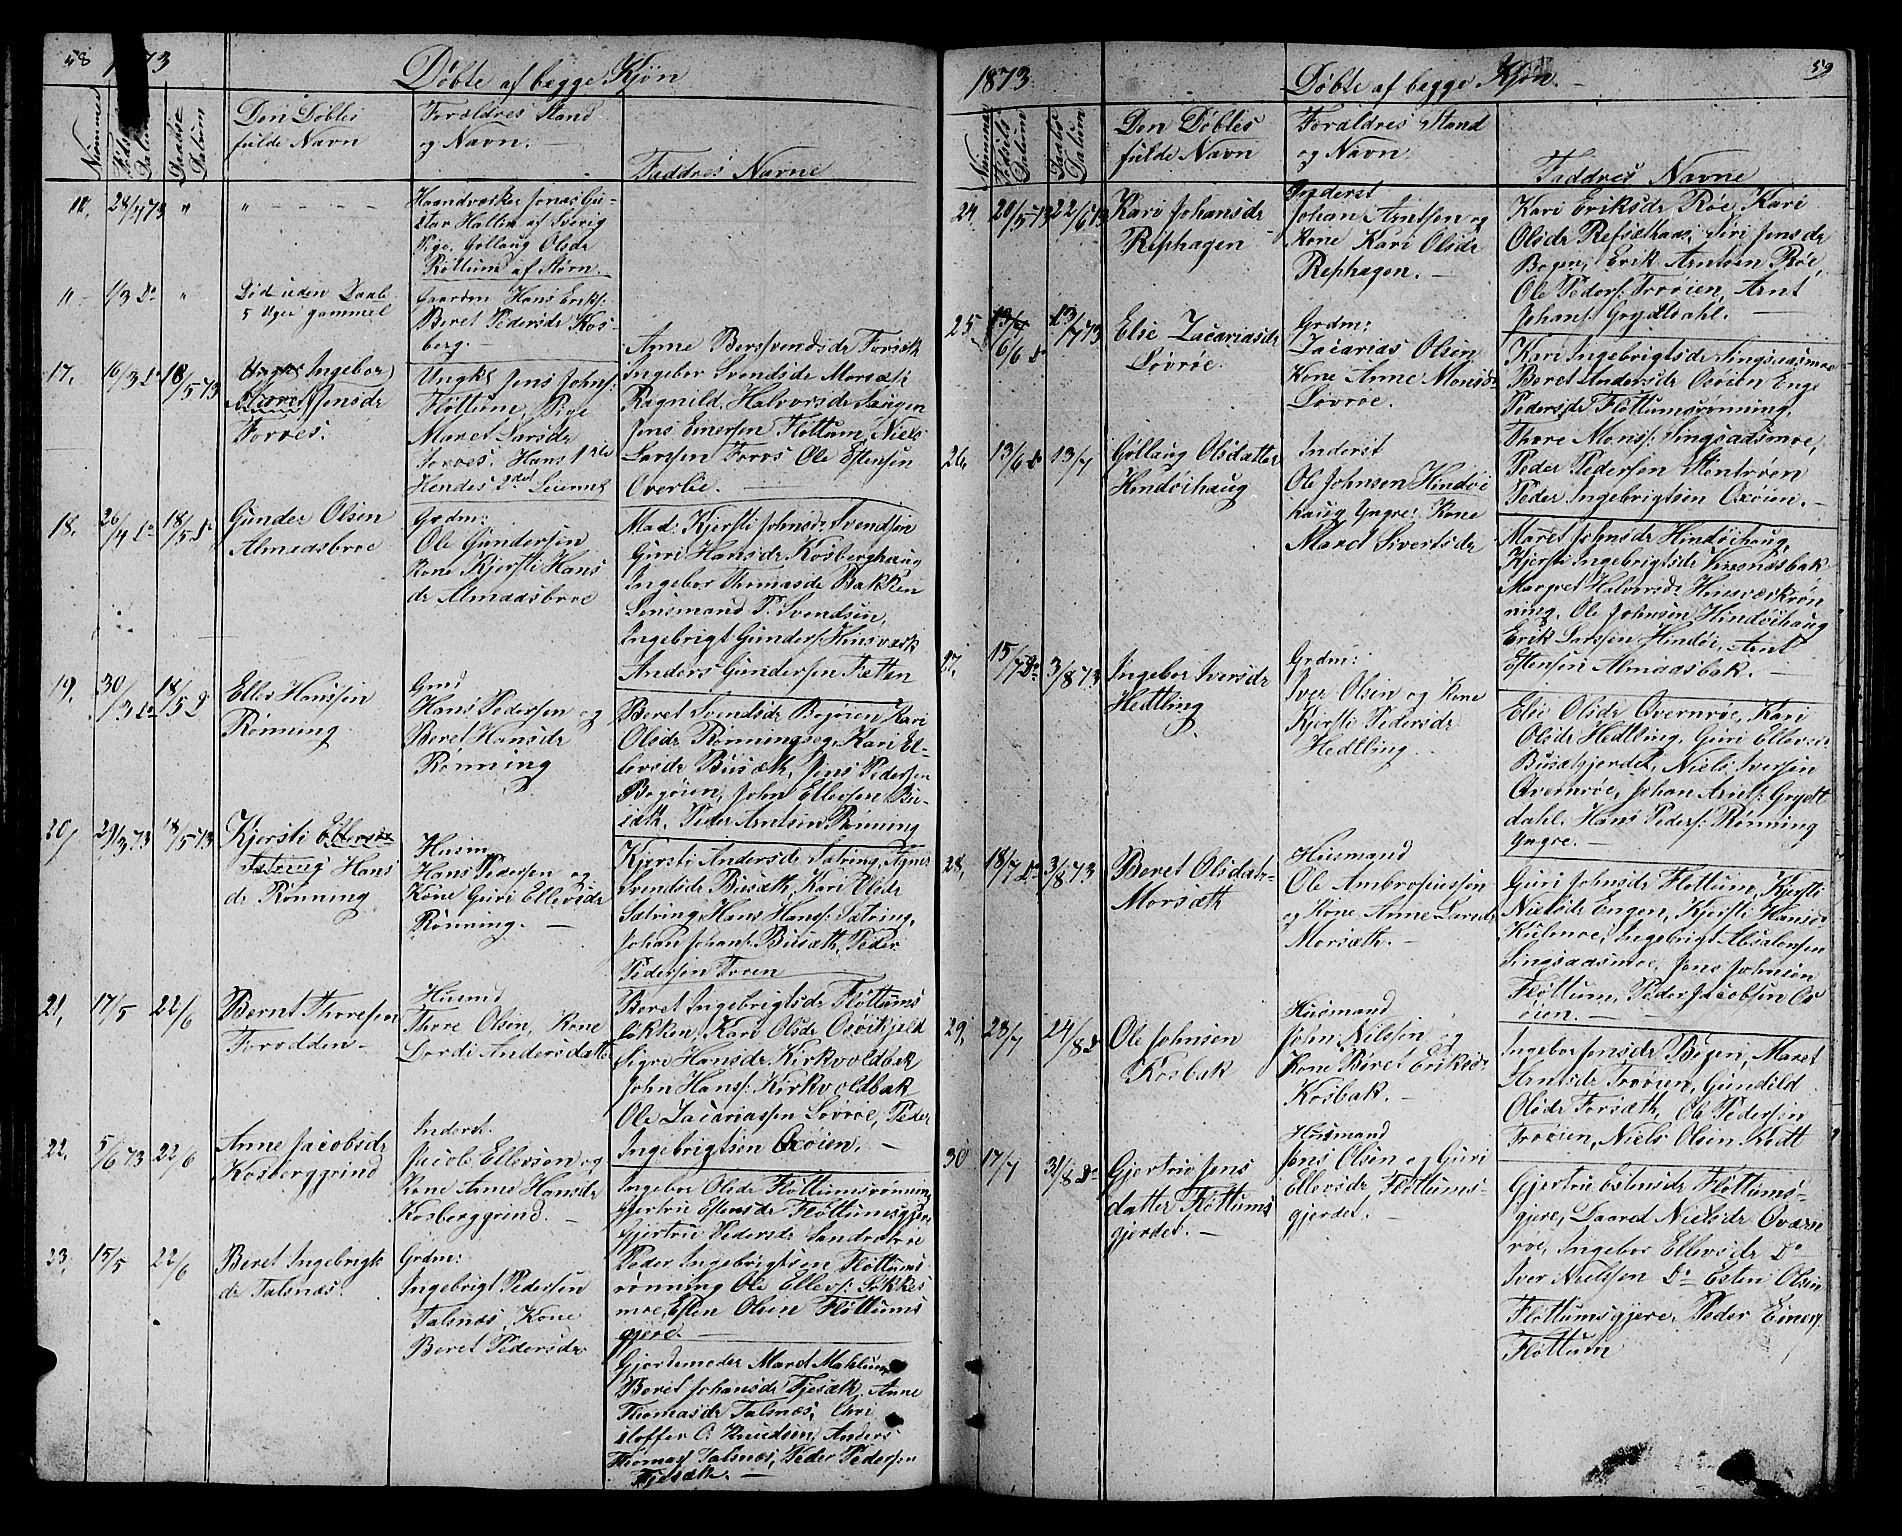 58 1873
Döbte af begge Kjøn
Nommer
Føds
Datum
Daabs
Datum
Den Döbtes
fulde Navn
Forældres Stand
og Navn. -
Faddres Navne
11. 28/4 73 " " - - - -
Haandværker Jonas Gu-
stav Hallen af
Pige Gollaug Olsdr
Rottum af Støren.
" - 1/3 Do "
Död uden Daab
5 Uger gammel
Gaardm Hans Eriks:
Beret Pedersdr Kos-
berg. -
17. 16/3 Do 18/5 73
Ingebor
Maret Jensdr
Forves.
Ungkl Jens Johns:
Fløttum, Pige
Maret Larsdr
Forves. Hans 1ste
Hendes 2det Leierml
Anne Bersvendsdr Forsæth
Ingebor Svendsdr Morsæt
Ragnild Halvorsdr Haugen
Jens Emersen Fløttum, Niels
Larssen Forvs Ole Estensen
Overlie. -
18. 26/4 Do 18/5 Do
Gunder Olsen
Almaasbroe
Grdm:
Ole Gundersen
Kone Kjersti Hans
dr Almaasbroe
Mad: Kjersti Johnsdr Svendsen
Guri Hansdr Kosberghaug
Ingebor Thomasdr Bakken
Lensmand P. Svendsen,
Ingebrigt Gunders: Hinsværk
Anders Gundersen Tætten
19. 30/3 Do 18/5 Do
Ellev Hanssen
Rønning
Grmd
Hans Pedersen og
Beret Hansdr
Rønning
Beret Svendsdr Bogøien Kari
Olsdr Rønningseg, Kari El-
levsdr Busæth, Jens Pedersen
Bogøien, John Ellevsen Bu-
sæth. Peder Arntsen Rønning
20, 29/3 73 18/5 73
Kjersti Ellevsdr
Sætring Hans
dr Rønning
Husm
Hans Pedersen og
Kone Guri Ellevsdr
Rønning. -
Kjersti Andersdr Sætring, Agnes
Svendsdr Busæth, Kari Olsdr
Sætring, Hans Hans: Sætring,
Johan Johans: Busæth, Peder
Pedersen Troen
21, 17/5 22/6
Bernt Thoresen
Forodden -
Husmd
Thore Olsen, Kone
Dordi Andersdatt
Beret Ingebrigtsdr Fløttums
løkken, Kari Olsdr
Sigre Hansdr Kirkvoldbak
John Hans: Kirkvoldbak
Ole Zacariassen Løvroe, Peder
Ingebrigtsen Oxøien. -
22, 5/6 73 22/6
Anne Jacobsdr
Kosberggrind
Inderst.
Jacob Ellevsen og
Kone Anne Hansdr
Kosberggrind. -
Ingebor Olsdr Fløttumsrønning
Gjertru Estensdr Fløttumsgjere
Gjertru Pedersdr Sandrøe
Peder Ingebrigtsen Fløttums
rønning Ole Ellevs: Løkkes
moe, Esten Olsen Fløttums
gjere. -
23, 15/5 22/6
Beret Ingebrigts
dr Talsnæs.
Grdm:
Ingebrigt Pedersen
Talsnæs, Kone
Beret Pedersdr
Gjordemoder Maret
Beret Johansdr Fjesæth, Anne
Thomasdr Talsnæs, Chri
stoffer O. Knudsen, Anders
Thomas: Talsnæs, Peder Pedersen
Fjesæth. -
1873 59
Döbte af begge Kjøn. -
Nommer
Fødsels
Datum
Daabs
Datum
Den Döbtes
fulde Navn
Forældres Stand
og Navn.
Faddres Navne
24. 20/5 73 22/6 73
Kari Johansdr
Rephagen
Inderst
Johan Arntsen og
Kone Kari Olsdr
Rephagen. -
Kari Eriksdr Røe, Kari
Olsdr Refsethaas, Siri Jensdr
Bogen, Erik Arntsen Røe,
Ole Peders: Troøien, Arnt
Johans: Grydtdahl. -
25. 6/6 Do 13/7 73
Elie Zacariasdr
Løvrøe.
Grdm:
Zacarias Olsen
Kone Anne Monsdr
Løvroe.
Kari Ingebrigtsdr Singsaasmoe
Beret Andersdr Oxøien Eng
Pedersdr Fløttumsrønning,
Thore Mons: Singsaasmoe,
Peder Pedersen Stentrøen
Peder Ingebrigtsen Oxøien. -
26, 13/6 Do 13/7
Gøllaug Olsdatter
Hindøihaug
Inderst
Ole Johnsen Hindøi
haug Yngre, Kone
Maret Sivertsdr
Maret Johnsdr Hindøihaug
Kjersti Ingebrigtsdr Kresnæsbak
Margret Halvorsdr Hinsværkrøn
ning, Ole Johnsen Hindøihaug
Erik Larssen Hindøi, Arnt
Estensen Almaasbak. -
27, 15/7 Do 3/8 73
Ingebor Iversdr
Hedtling
Grdm:
Iver Olsen og Kone
Kjersti Pedersdr
Hedtling.
Elie Olsdr Overnrøe, Kari
Olsdr Hedtling, Guri Ellevsdr
Busætgjerdet, Niels Iversen
Overnrøe, Johan Arnts: Grydt
dahl. Hans Peders: Rønning
Yngre. -
28, 18/7 Do 3/8 73
Beret Olsdatr-
Morsæth
Husmand
Ole Ambrosiussen
og Kone Anne Larsdr
Morsæth. -
Guri Johnsdr Fløttum, Kjersti
Nielsdr Engen, Kjersti Hansdr
Kulmoe, Ingebrigt Absalonsen
Singsaasmoe, Jens Johnsen
Fløttum, Peder Jacobsen Ox
øien. -
29, 23/7 24/8 Do
Ole Johnsen
Kosbak
Husmand
John Nilsen og
Kone Beret Eriksdr
Kosbak. -
Ingebor Jensdr Bogen, Maret
Arntsdr Troøien, Gunild
Olsdr Forsæth, Ole Pedersen
Troøien, Niels Olsen Kodt
30 17/7 31/8 Do
Gjertru Jens
datter Fløttums
gjerdet. -
Husmand
Jens Olsen og Guri
Ellevsdr Fløttums-
gjerdet. -
Gjertru Estensdr Fløttums-
gjere, Maret Nielsdr Overn
røe, Ingebor Ellevsdr Do
Iver Nielsen Do Esten Olsen
Fløttumsgjere, Peder Emers
Fløttum